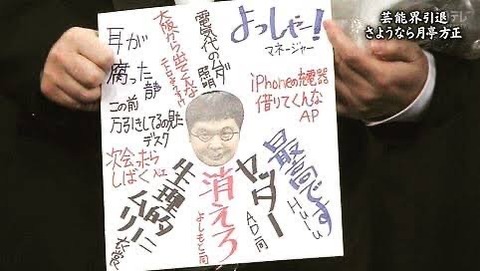 芸能界引退
さようなら月亭方正
よっしゃー!
マネージャー
電気代のムダ
照明
大阪から出てくんな
耳が
腐った
この前
万引きしてるの見た
デスク
次会ったら
しばく
生理的に
ムリー
衣裳
消えろ
よしもと一同
ヤッター
AD一同
最高です
Hulu
iPhoneの充電器
借りてくんな
AP